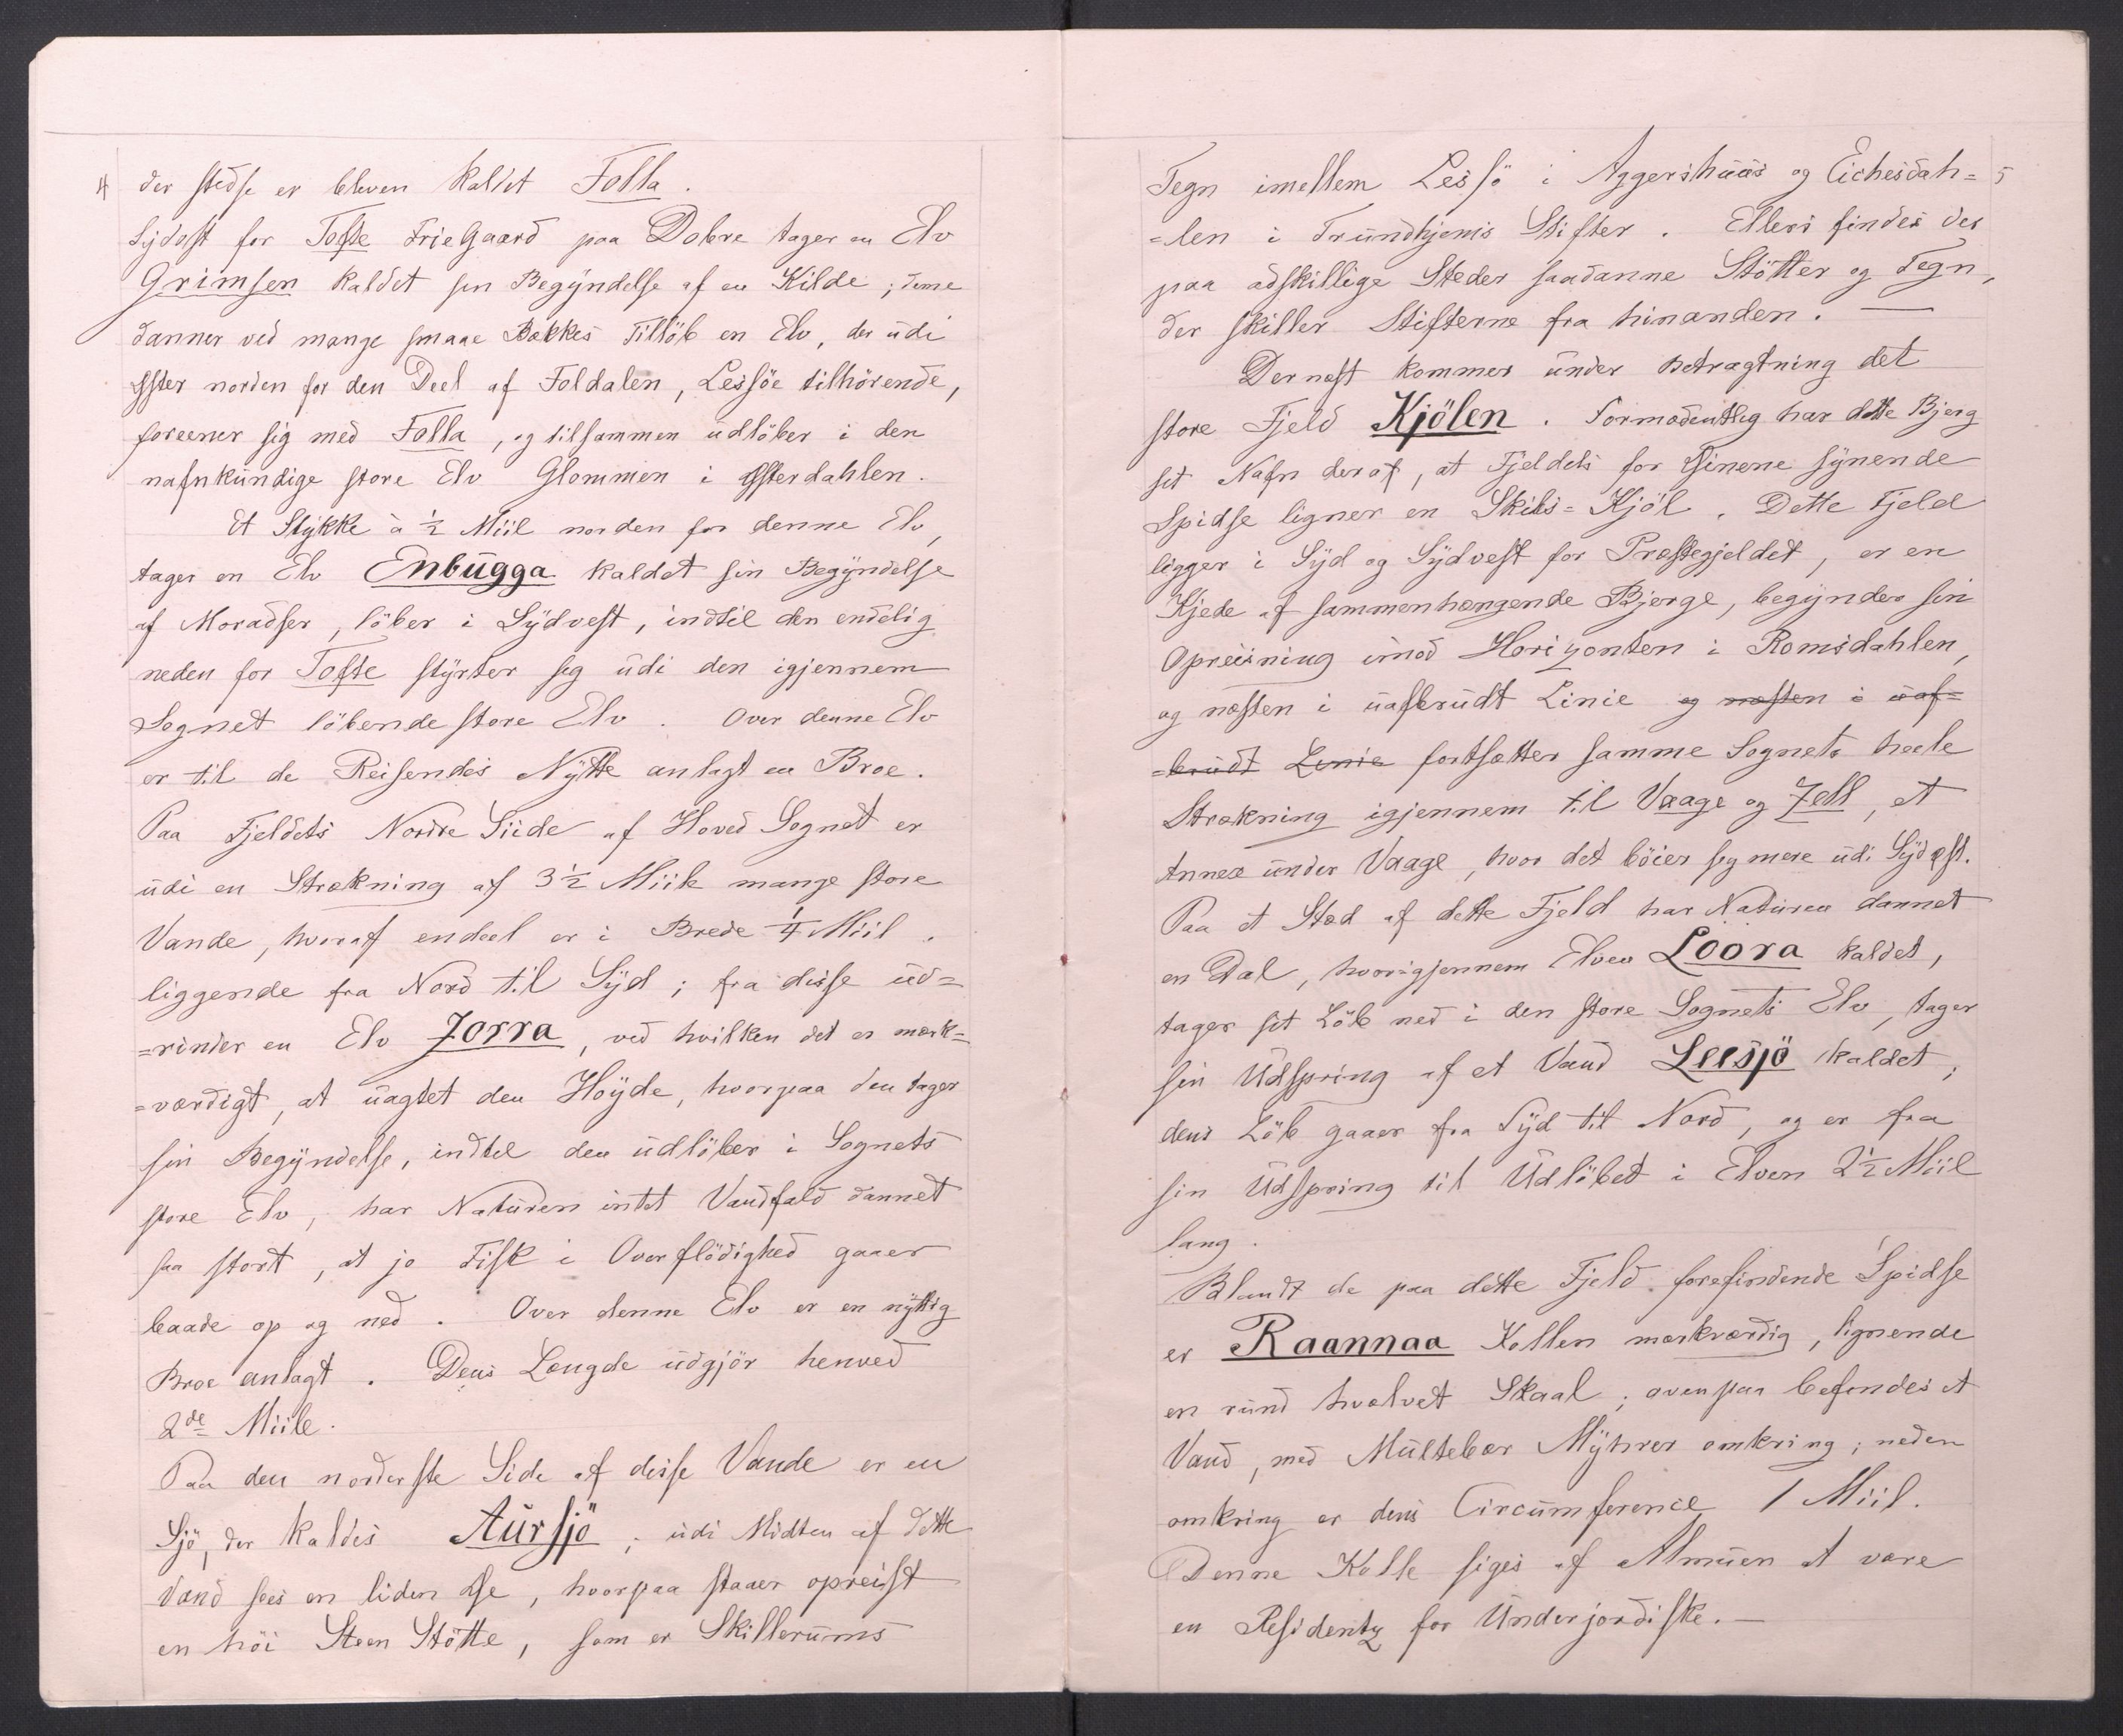 4
der stedse er bleven kaldet Folla.
Sydost for Tofte FrieGaard paa Dobre tager en Elv
Grimsen kaldet sin Begyndelse af en Kilde; denne
danner ved mange smaae Bækkes Tilløb en Elv, der udi
Øster norden for den Deel af Foldalen, Lessøe tilhørende,
foreener sig med Folla, og tilsammen udløber i den
nafnkundige store Elv Glommen i Østerdahlen.
Et Stykke à ½ Miil norden for denne Elv,
tager en Elv Enbugga kaldet sin Begyndelse
af Moradser, løber i Sydvest, indtil den endelig
neden for Tofte styrter sig udi den igjennem
Sognet løbende store Elv. Over denne Elv
er til de Reisendes Nytte anlagt en Broe.
Paa Fjeldets Nordre Siide af Hoved Sognet er
udi en Strækning af 3½ Miile mange store
Vande, hvoraf endeel er i Brede ¼ Miil.
liggende fra Nord til Syd; fra disse ud=
=rinder en Elv Jorra, ved hvilken det er mærk=
=værdigt, at uagtet den Höyde, hvorpaa den tager
sin Begyndelse, indtil den udløber i Sognets
store Elv, har Naturen intet Vandfald dannet
saa stort, at jo Fisk i Overflødighed gaaer
baade op og ned. Over denne Elv er en nyttig
Broe anlagt. Dens Længde udgjör henved
2de Miile.
Paa den norderste Side af disse Vande er en
Sjö, der kaldes Aursjö; udi Midten af dette
Vand sees en liden Øe, hvorpaa staaer opreist
en höi Steen Stötte, som er Skillerums
5
Tegn imellem Lessö i Aggershuus og Eichesdah=
=len i Trundhjems Stifter. Ellers findes der
paa adskillige Steder saadanne Stötter og Tegn,
der skiller Stifterne fra hinanden. —
Dernæst kommer under Betragtning det
store Fjeld Kjölen. Formodentlig har dette Bjerg
sit Nafn deraf, at Fjeldets for Øinene synende
Spidse ligner en Skibs=Kjöl. Dette Fjeld
ligger i Syd og Sydvest for Præstegjeldet, er en
Kjede af sammenhængende Bjerge, begynder sin
Opreisning imod Horizonten i Romsdahlen,
og næsten i uafbrudt Linie og næsten i uaf=
=brudt Linie fortsætter samme Sognets heele
Strækning igjennem til Vaage og Jell, et
Annex under Vaage, hvor det böier sig mere udi Sydøst.
Paa et Stæd af dette Fjeld har Naturen dannet
en Dal, hvorigjennem Elven Loora kaldet,
tager sit Löb ned i den store Sognets Elv, tager
sin Udspring af et Vand Leesjö kaldet,
dens Löb gaaer fra Syd til Nord, og er fra
sin Udspring til Udløbet i Elven 2½ Miil
lang.
Blandt de paa dette Fjeld forefindende Spidse
er Raannaa Kollen mærkværdig, lignende
en rund hvælvet Skaal; ovenpaa befindes et
Vand, med Multebær Myhrer omkring; neden
omkring er dens Circumference 1 Miil.
Denne Kolle siges af Almuen at være
en Residentz for Underjordiske. —